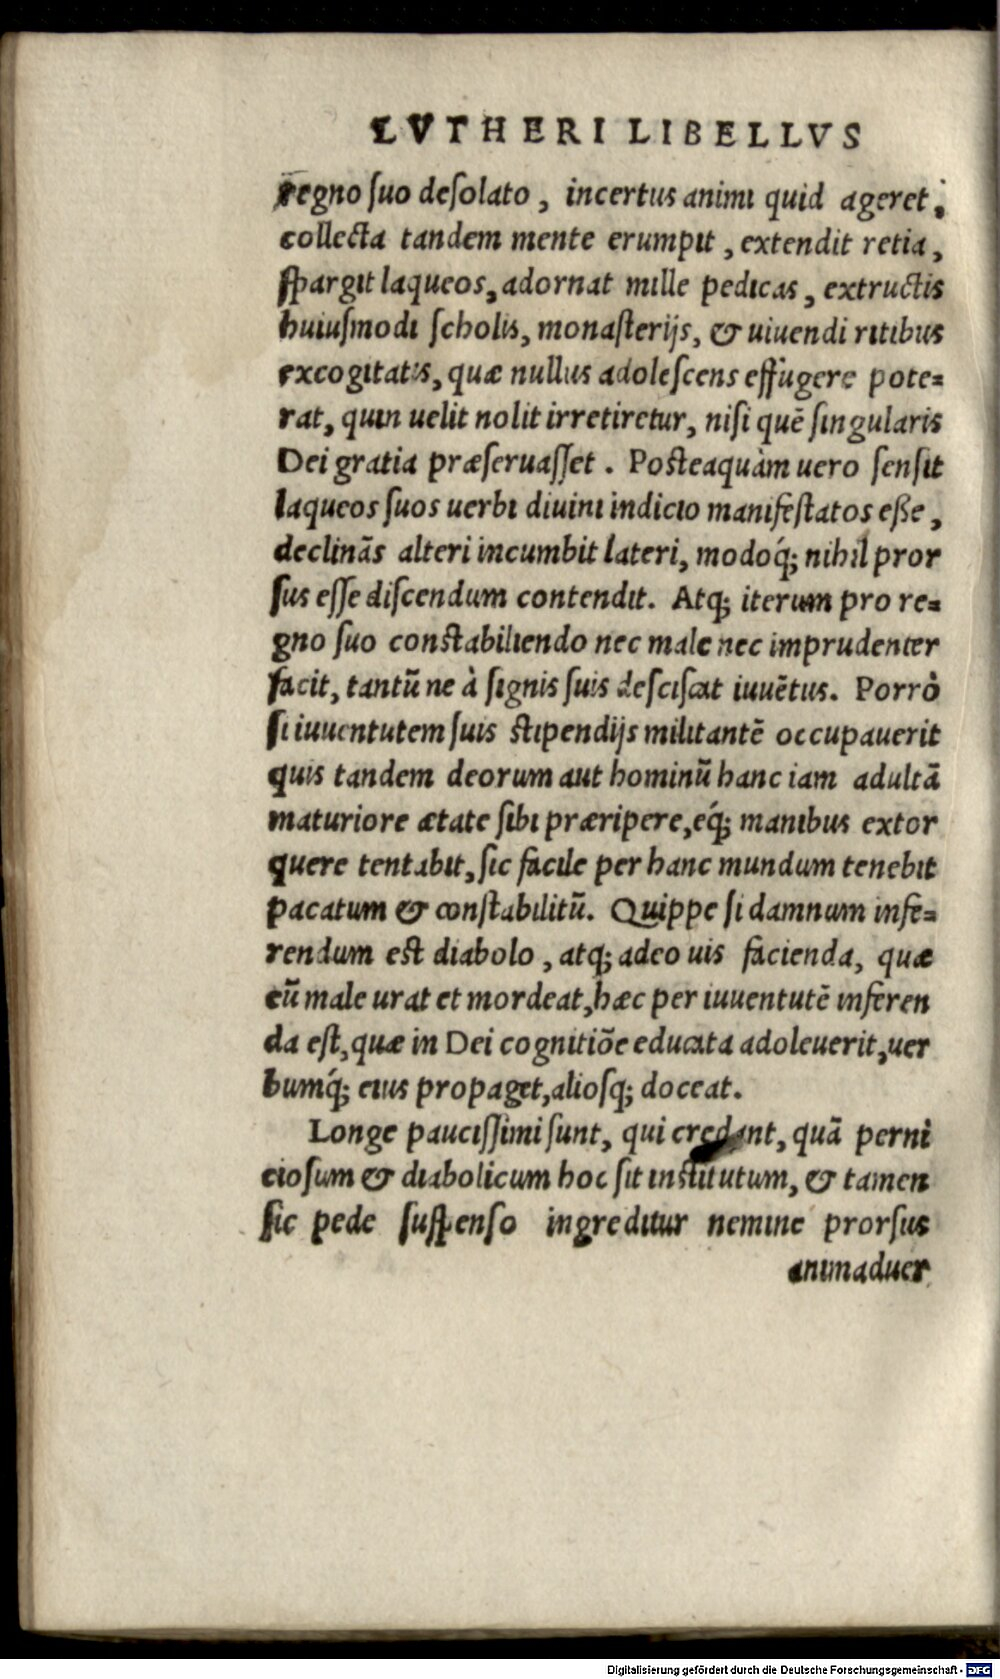 LVTHERI LIBELLVS
regno ſuo deſolato, incertus animi quid ageret,
collecta tandem mente erumpit, extendit retia,
ſpargit laqueos, adornat mille pedicas, extructis
huiuſmodi ſcholis, monaſterijs, & uiuendi ritibus
excogitatis, quæ nullus adoleſcens effugere pote=
rat, quin uelit nolit irretiretur, niſi quē ſingularis
Dei gratia præſeruaſſet. Poſteaquàm uero ſenſit
laqueos ſuos uerbi diuini indicio manifeſtatos eße,
declinās alteri incumbit lateri, modoq́; nihil pror
ſus eſſe diſcendum contendit. Atq; iterum pro re=
gno ſuo conſtabiliendo nec male nec imprudenter
facit, tantū ne à ſignis ſuis deſciſcat iuuētus. Porrò
ſi iuuentutem ſuis ſtipendijs militantē occupauerit
quis tandem deorum aut hominū hanc iam adultā
maturiore ætate ſibi præripere, eq́; manibus extor
quere tentabit, ſic facile per hanc mundum tenebit
pacatum & conſtabilitū. Quippe ſi damnum infe=
rendum eſt diabolo, atq; adeo uis facienda, quæ
eū male urat et mordeat, hæc per iuuentutē inferen
da eſt, quæ in Dei cognitiōe educata adoleuerit, uer
bumq́; eius propaget, alioſq; doceat.
Longe pauciſſimi ſunt, qui credant, quā perni
cioſum & diabolicum hoc ſit inſtitutum, & tamen
ſic pede ſuſpenſo ingreditur nemine prorſus
animaduer
Digitalisierung gefördert durch die Deutsche Forschungsgemeinschaft - DFG